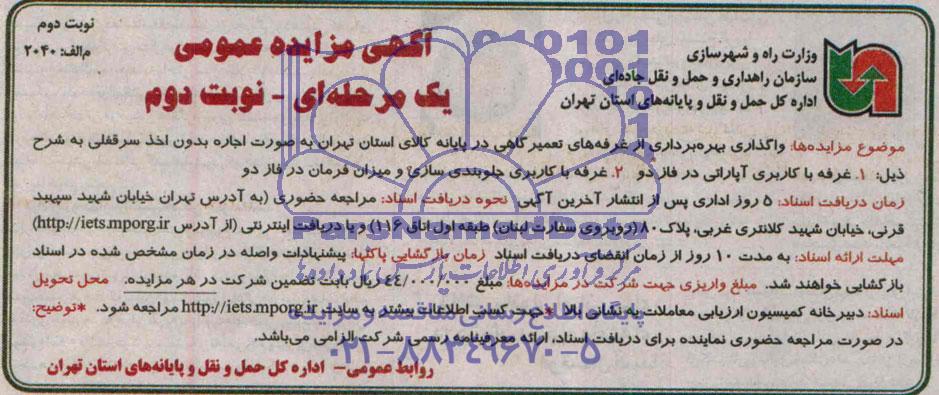 نوبت دوم
م‌الف: ۲۰۴۰
آگهی مزایده عمومی
یک مرحله‌ای - نوبت دوم
وزارت راه و شهرسازی
سازمان راهداری و حمل و نقل جاده‌ای
اداره کل حمل و نقل و پایانه‌های استان تهران
موضوع مزایده‌ها: واگذاری بهره‌برداری از غرفه‌های تعمیرگاهی در پایانه کالای استان تهران به صورت اجاره بدون اخذ سرقفلی به شرح
ذیل: ۱. غرفه با کاربری آپاراتی در فاز دو ۲. غرفه با کاربری جلوبندی سازی و میزان فرمان در فاز دو
زمان دریافت اسناد: ۵ روز اداری پس از انتشار آخرین آگهی. نحوه دریافت اسناد: مراجعه حضوری (به آدرس تهران خیابان شهید سپهبد
قرنی، خیابان شهید کلانتری غربی، پلاک ۸۰ (روبروی سفارت لبنان) طبقه اول اتاق ۱۱۶) و یا دریافت اینترنتی (از آدرس http://iets.mporg.ir)
مهلت ارائه اسناد: به مدت ۱۰ روز از زمان انقضای دریافت اسناد زمان بازگشایی پاکتها: پیشنهادات واصله در زمان مشخص شده در اسناد
بازگشایی خواهند شد. مبلغ واریزی جهت شرکت در مزایده‌ها: مبلغ ۴۴/۰۰۰/۰۰۰ ریال بابت تضمین شرکت در هر مزایده. محل تحویل
اسناد: دبیرخانه کمیسیون ارزیابی معاملات به نشانی بالا *جهت کسب اطلاعات بیشتر به سایت http://iets.mporg.ir مراجعه شود. *توضیح:
در صورت مراجعه حضوری نماینده برای دریافت اسناد، ارائه معرفینامه رسمی شرکت الزامی می‌باشد.
روابط عمومی- اداره کل حمل و نقل و پایانه‌های استان تهران
ParsNamadData
مرکز فرآوری اطلاعات پارس نماد داده‌ها
پایگاه اطلاع رسانی مناقصه و مزایده
۰۲۱-۸۸۳۴۹۶۷۰-۵